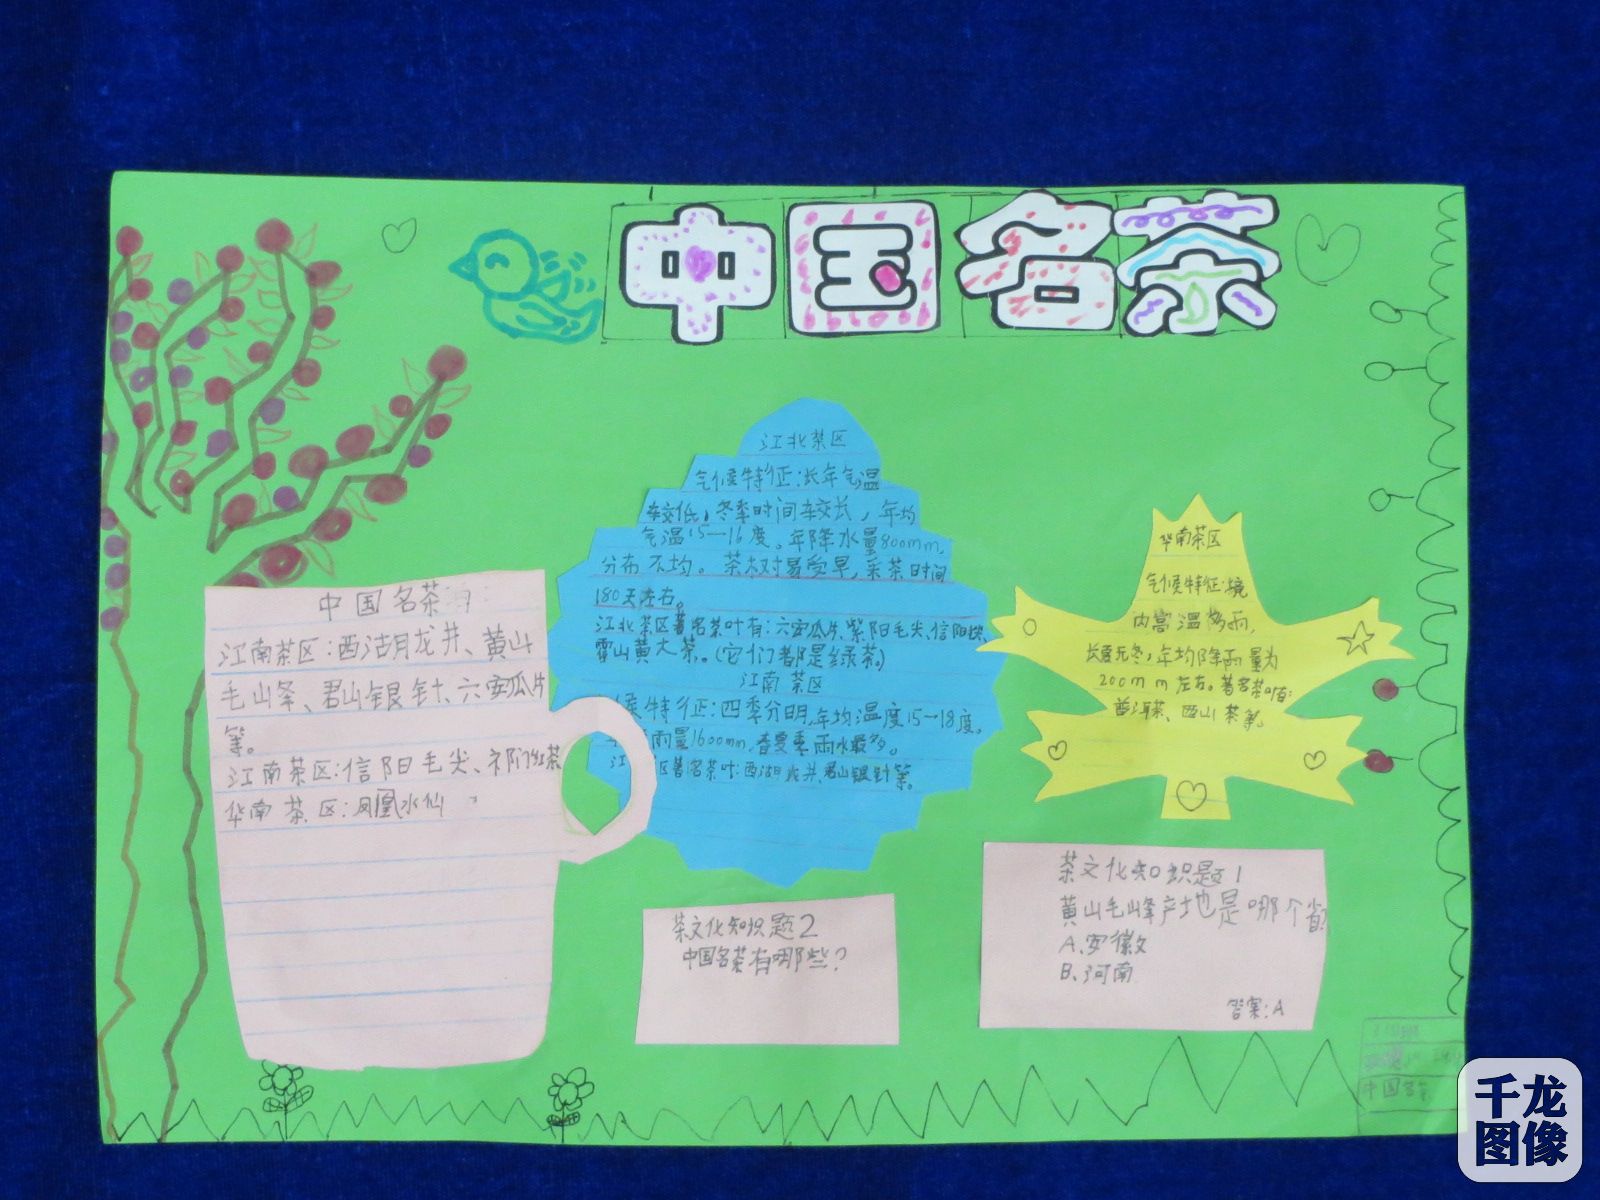 中国名茶
中国名茶
江南茶区:西湖龙井、黄山
毛山峰、君山银针、六安瓜片
等。
江南茶区:信阳毛尖、祁门红茶
华南茶区:凤凰水仙
江北茶区
气候特征:长年气温
较低,冬季时间较长,年均
气温15—16度。年降水量800mm,
分布不均。茶树易受旱,采茶时间
180天左右。
江北茶区著名茶叶有:六安瓜片,紫阳毛尖,信阳
霍山黄大茶。(它们都是绿茶。)
江南茶区
候特征:四季分明,年均温度15—18度。
雨量1600mm,春夏季雨水最多。
江 区著名茶叶:西湖龙井,君山银针等。
华南茶区
气候特征:境
内高温多雨,
长夏无冬,年均降雨量为
200mm左右。著名茶叶有:
普洱茶、西山茶等。
茶文化知识题2
中国名茶有哪些?
茶文化知识题1
黄山毛峰产地是哪个省?
A.安徽
B.河南
答案:A
中国名茶
千龙
图像